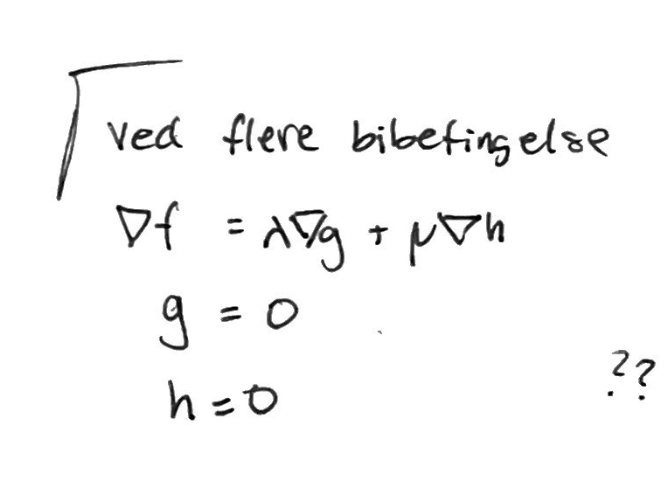 ved flere bibetingelse
∇f = λ∇g + μ∇h
g = 0
h = 0
??